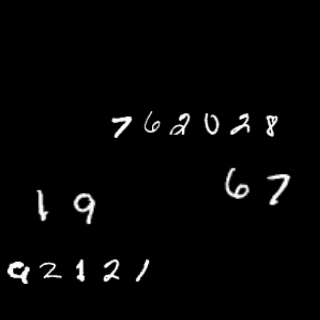 762028
67
19
92121